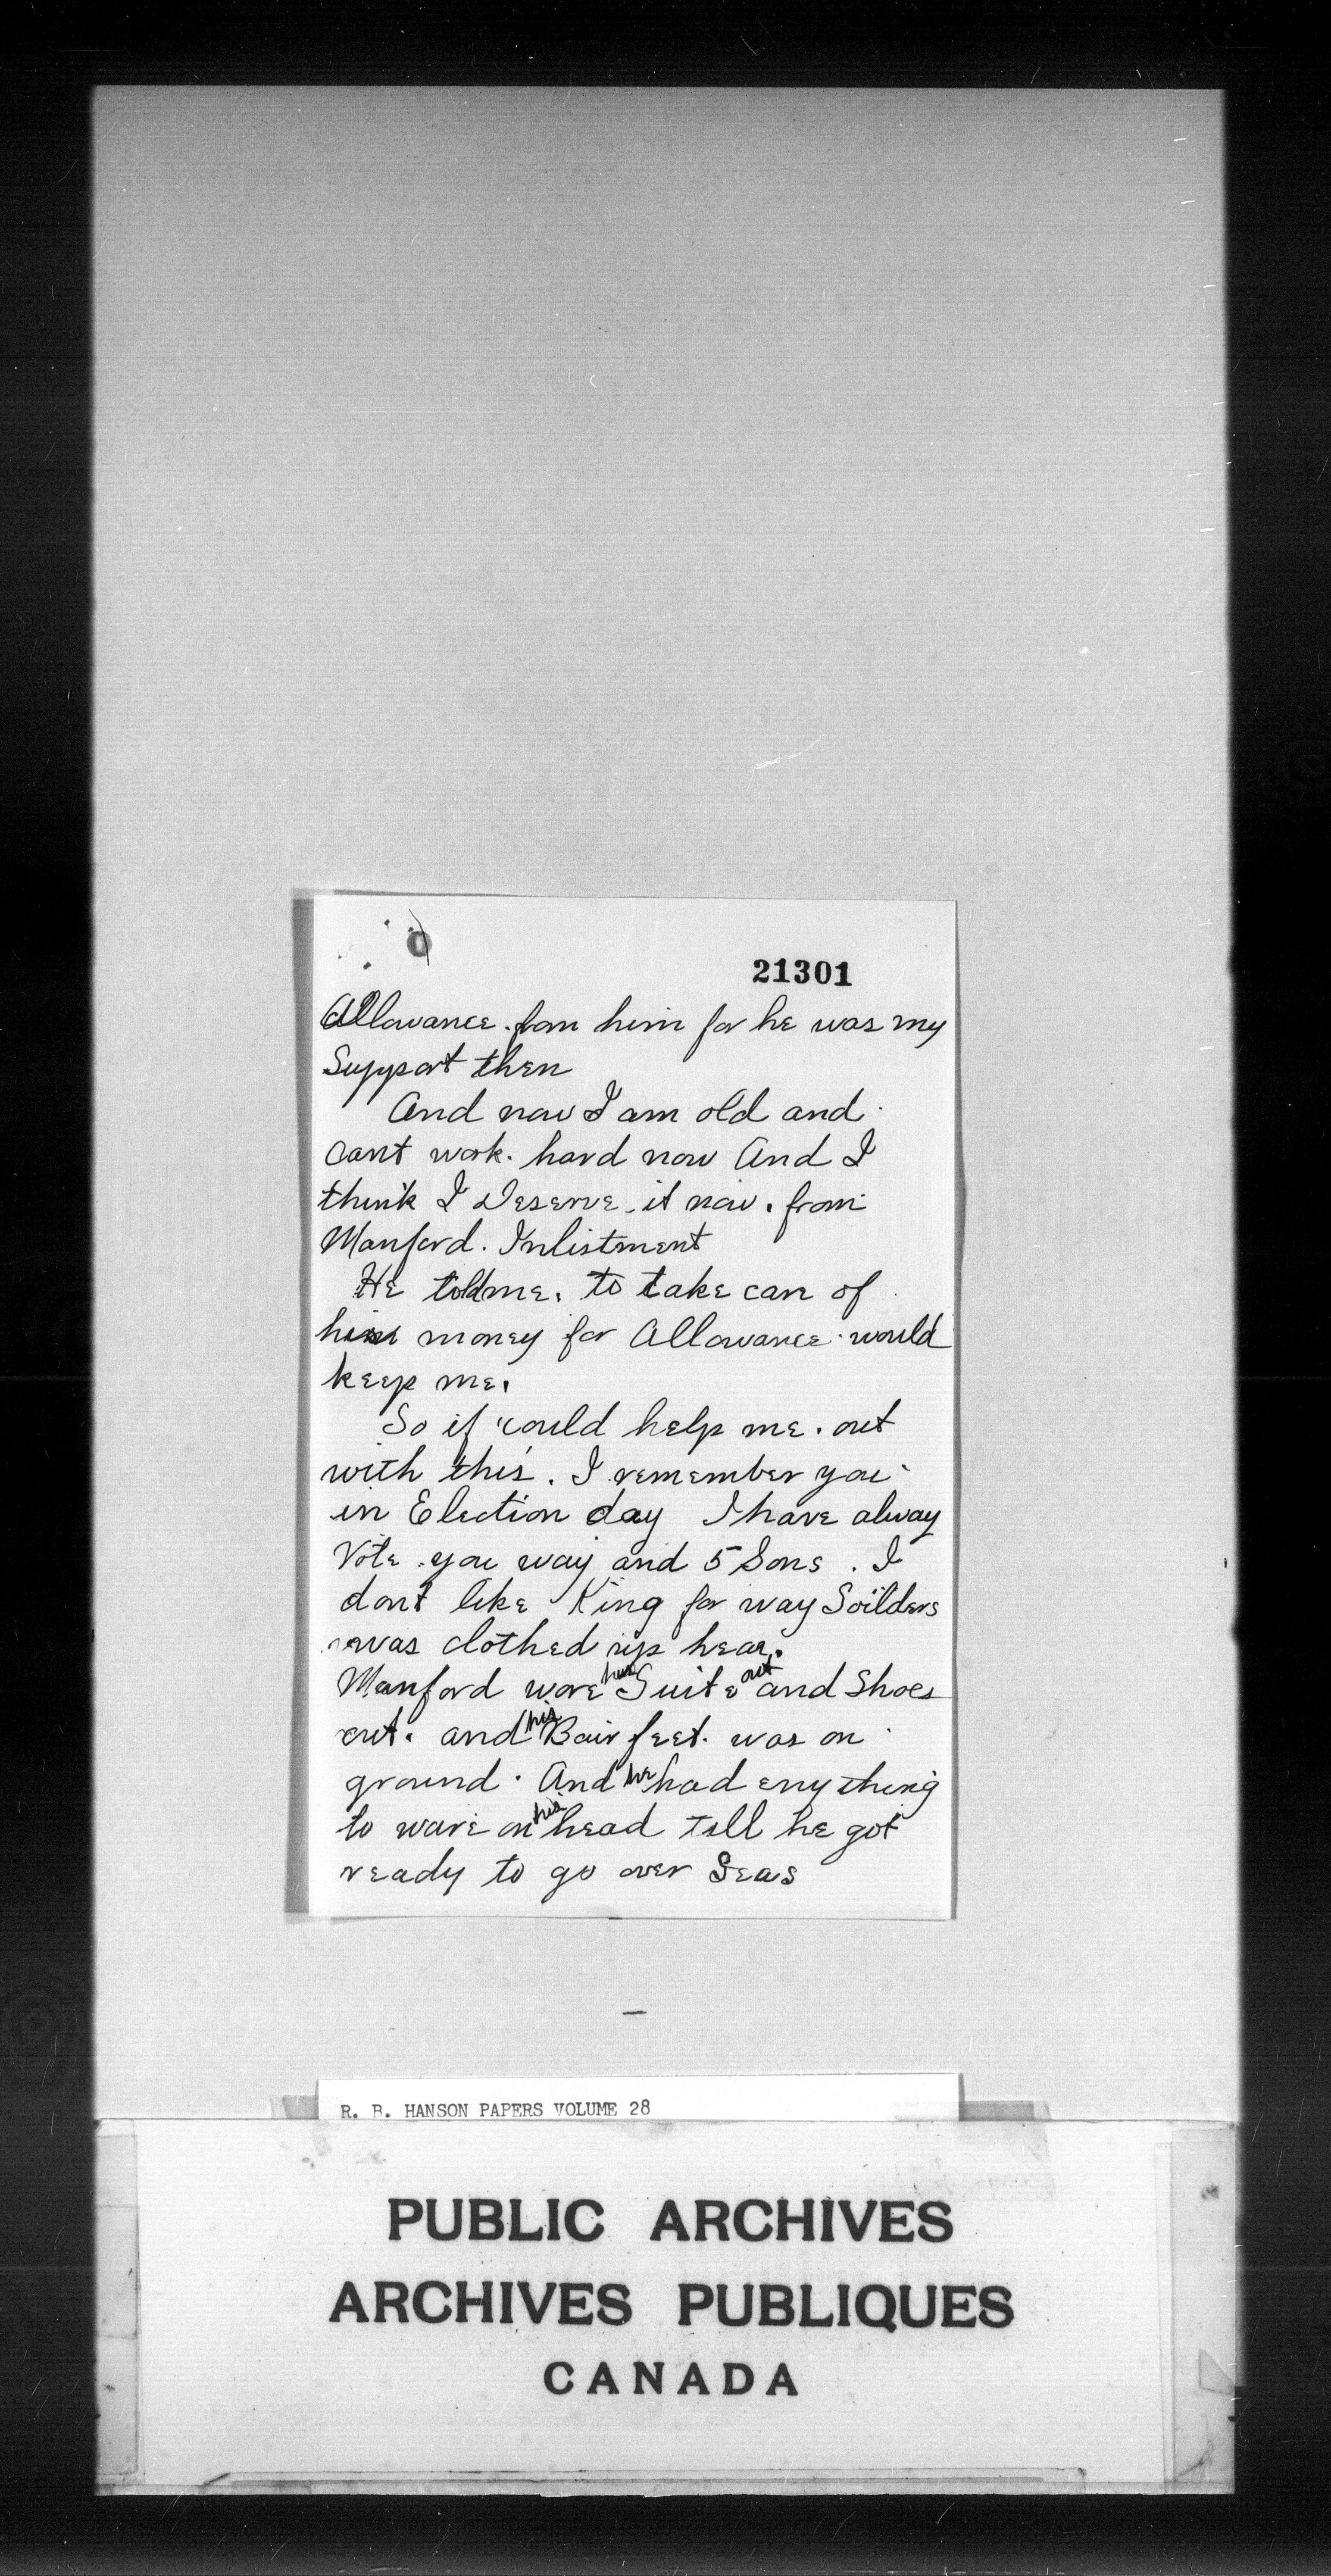 21301
Allowance. fom him for he was my
Support then
And now I am old and
cant work. hard now And I
think I Deserve. it now. from
Manford. Inlistment
He told me. to take care of
his money for Allowance would
keep me.
So if could help me. out
with this. I remember you
in Election day I have alway
Vote you way and 5 Sons. I
dont like King for way Soilders
was clothed up hear.
Manford wore his Suite out and Shoes
out. and his Bair feet. was on
ground. And he had eny thing
to ware on his head tell he got
ready to go over Seas
R. B. HANSON PAPERS VOLUME 28
PUBLIC ARCHIVES
ARCHIVES PUBLIQUES
CANADA